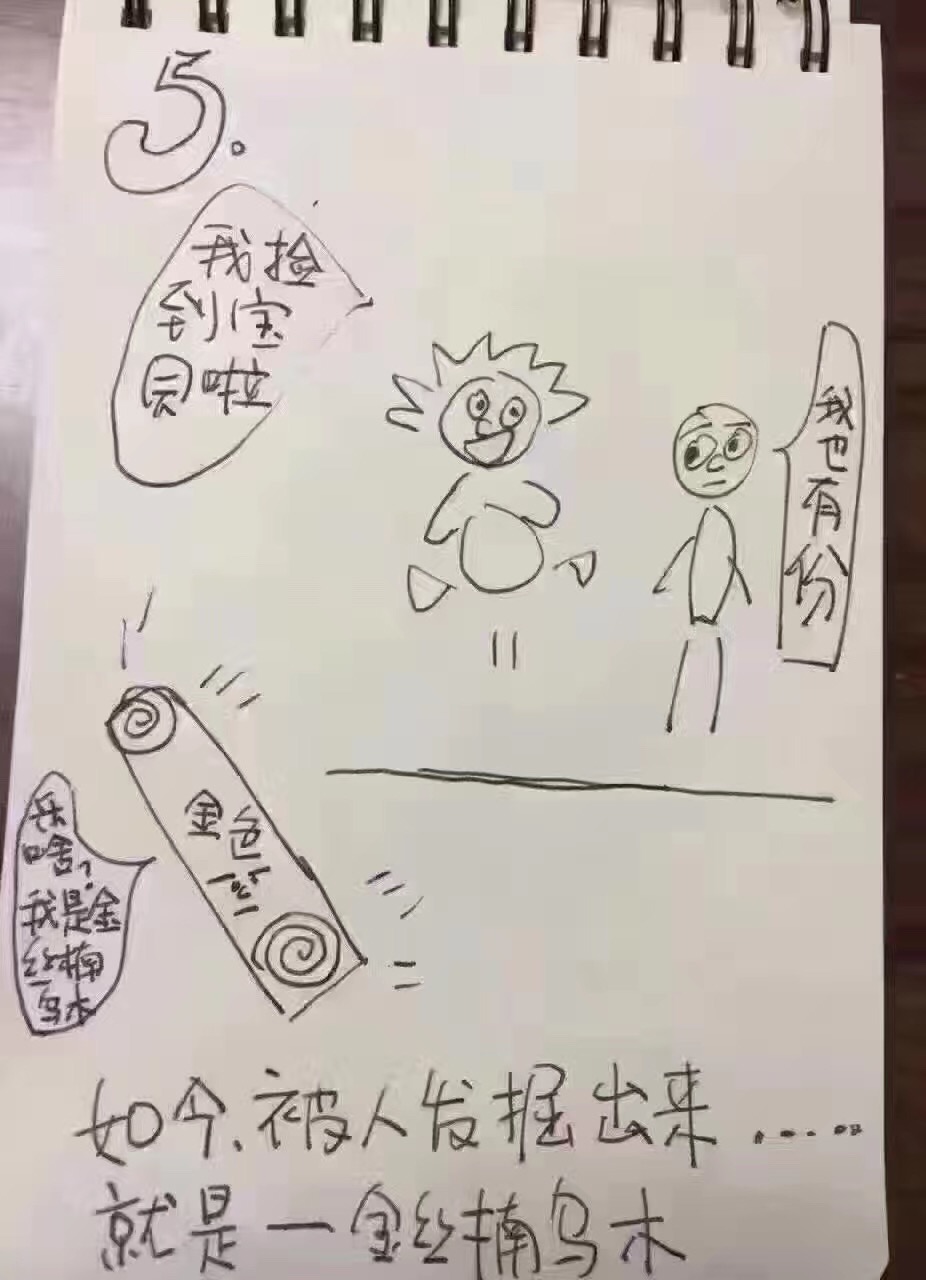 5.
我捡
到宝
贝啦
我也有份
金色的
乐
啥?
我是金
丝楠
乌木
如今、被人发掘出来......
就是一金丝楠乌木